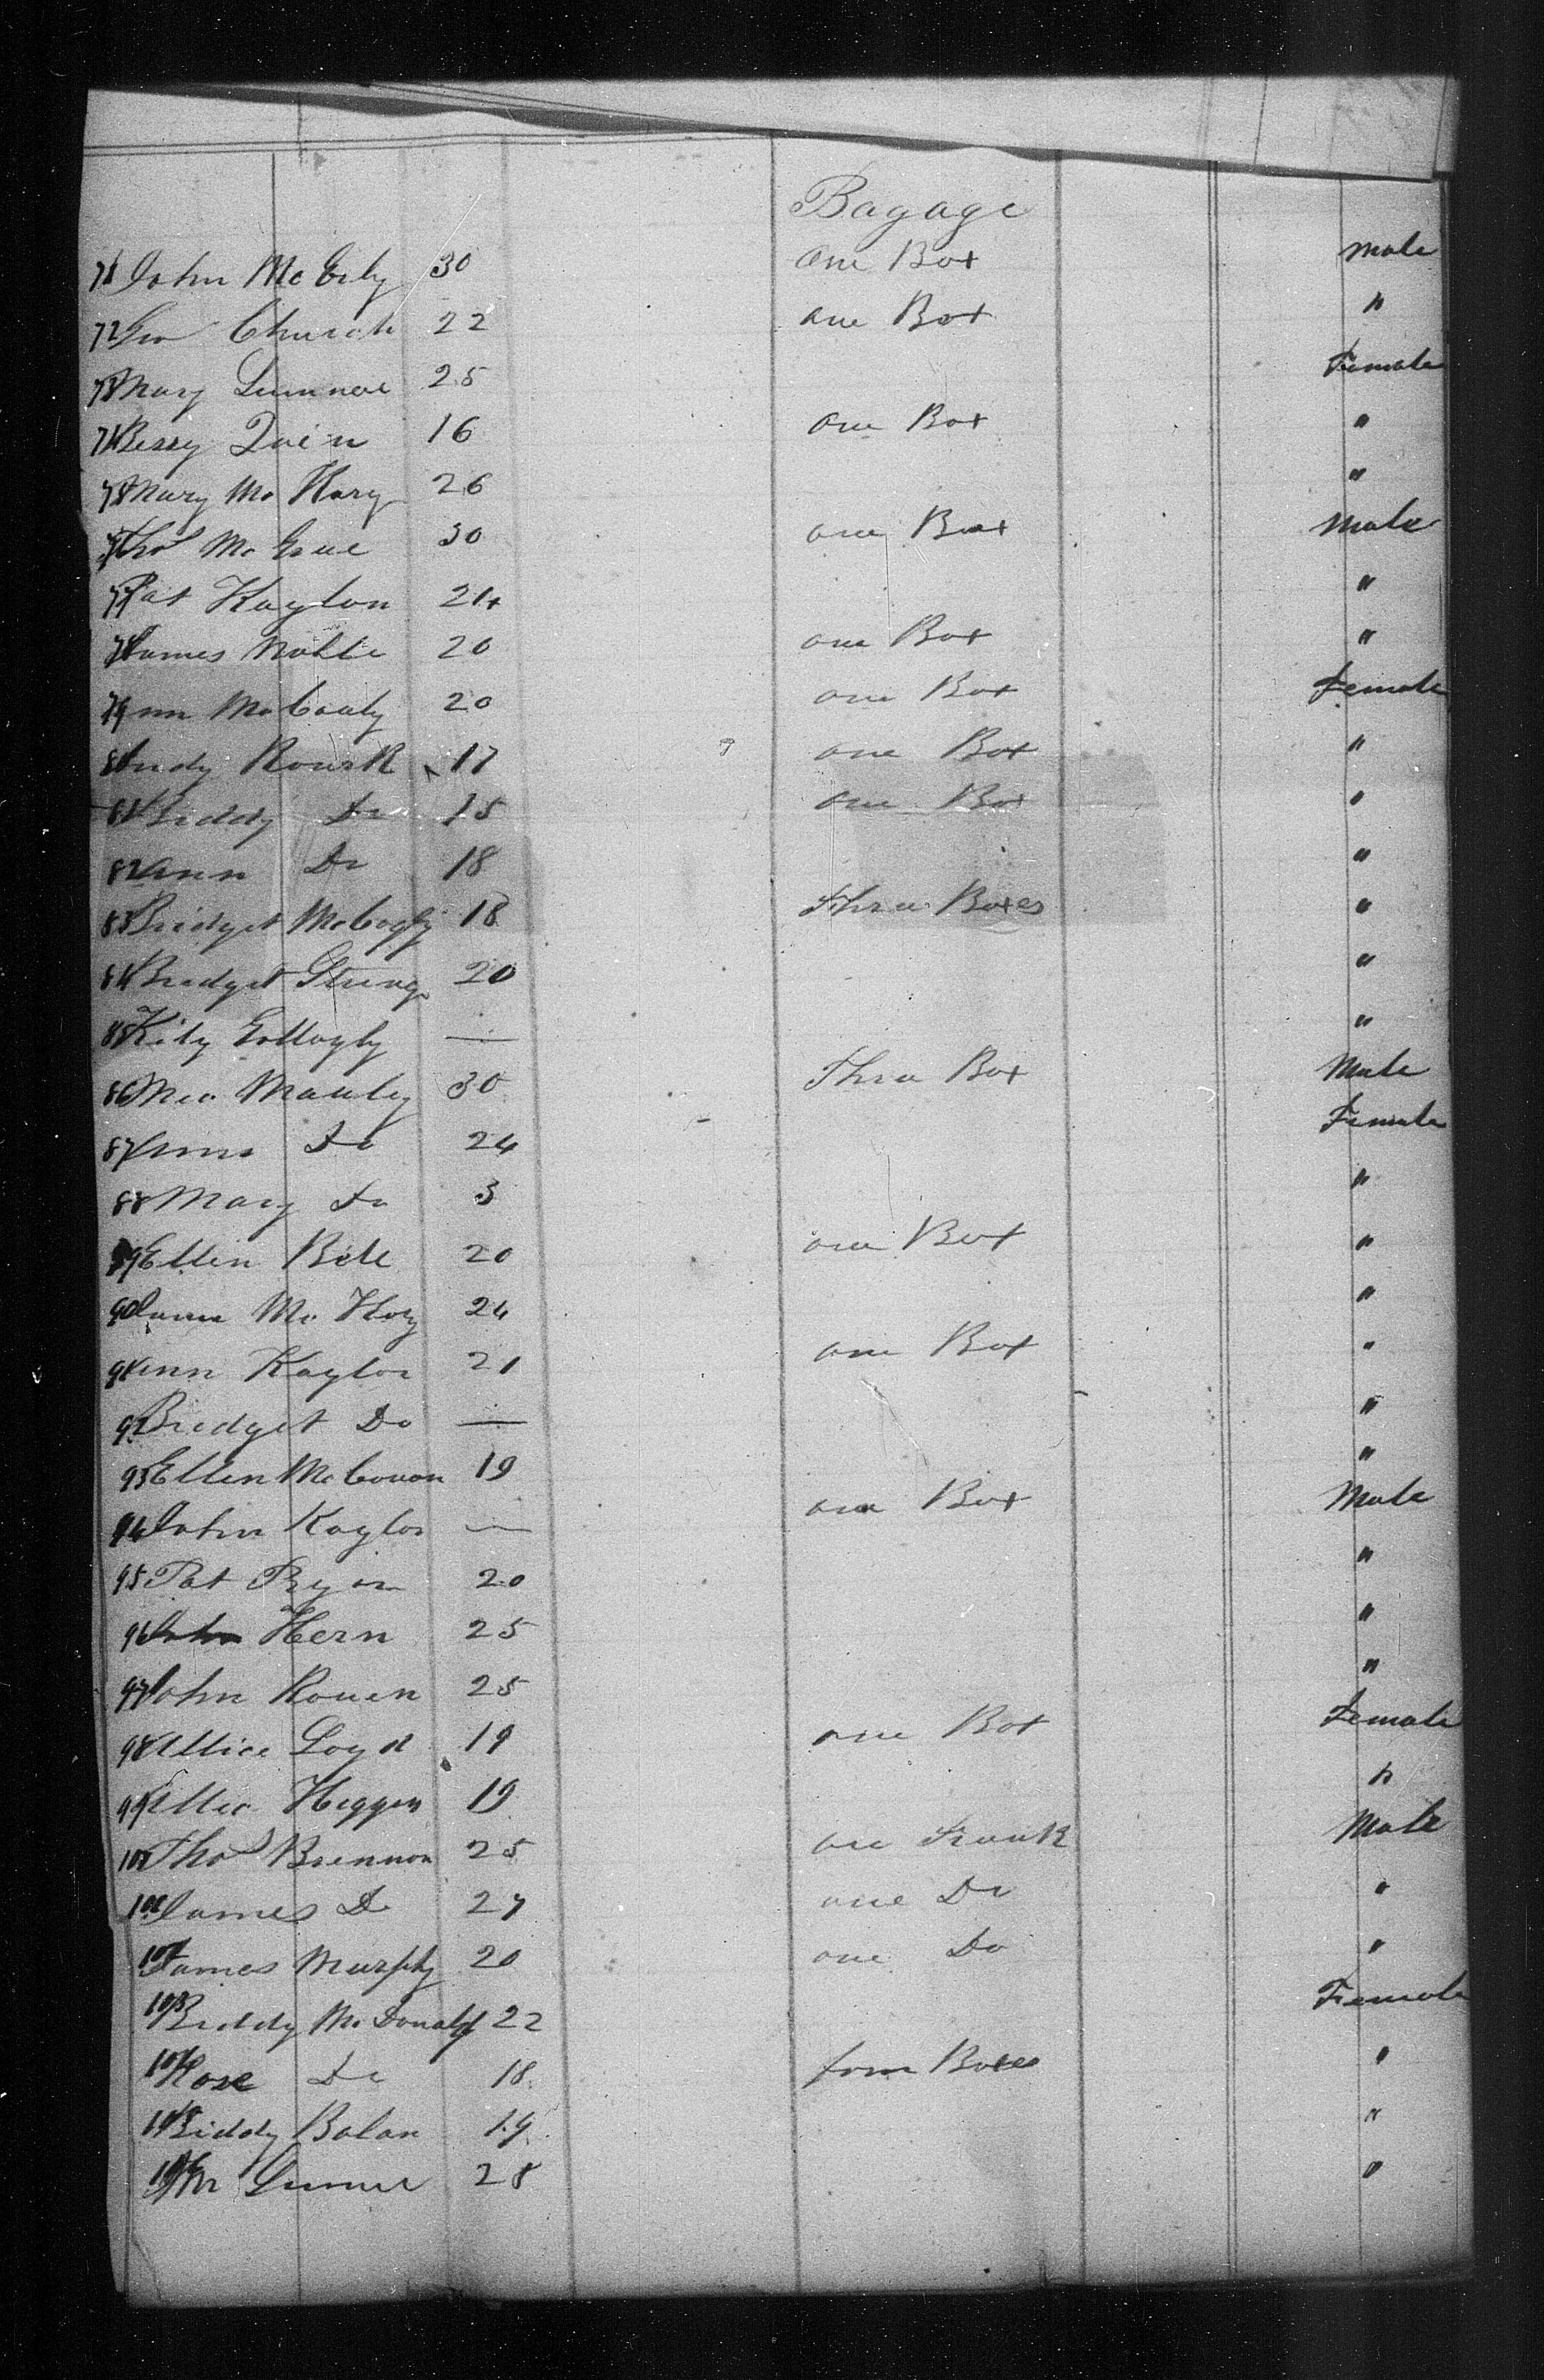 Bagage
71 John McErly 30 one Box Male
72 Geo Church 22 one Box "
73 Mary 25 Female
74 Bessy Quin 16 one Box "
75 Mary Mc Hary 26 "
76 Thos Mc Grae 30 one Box Male
77 Pat Kaylon 24 "
78 James Noble 20 one Box "
79 Ann McCauly 20 one Box Female
80 Andy Rourk 17 one Box "
81 Biddy Do 15 one Box "
82 Ann Do 18 "
83 Bridget 18 Three Boxes "
84 Bridget 20 "
85 Kity — "
86 Manley 30 Three Box Male
87 Do 24 Female
88 Mary Do 3 "
89 Ellin Bell 20 one Box "
90 Mc Hory 24 "
91 Ann Kaylor 21 one Box "
92 Bridget Do — "
93 Ellen McCowan 19 "
94 John Kaylor — one Box Male
95 Pat Ryan 20 "
96 John Hern 25 "
97 John Rouen 25 "
98 Allice Loyd 19 one Box Female
99 Higgen 19 "
100 Thos Brennon 25 one Trunk Male
101 James Do 27 one Do "
102 James Murphy 20 one Do "
103 Biddy McDonald 22 Female
104 Rose Do 18 four Boxes "
105 Biddy Bolan 19 "
106 28 "